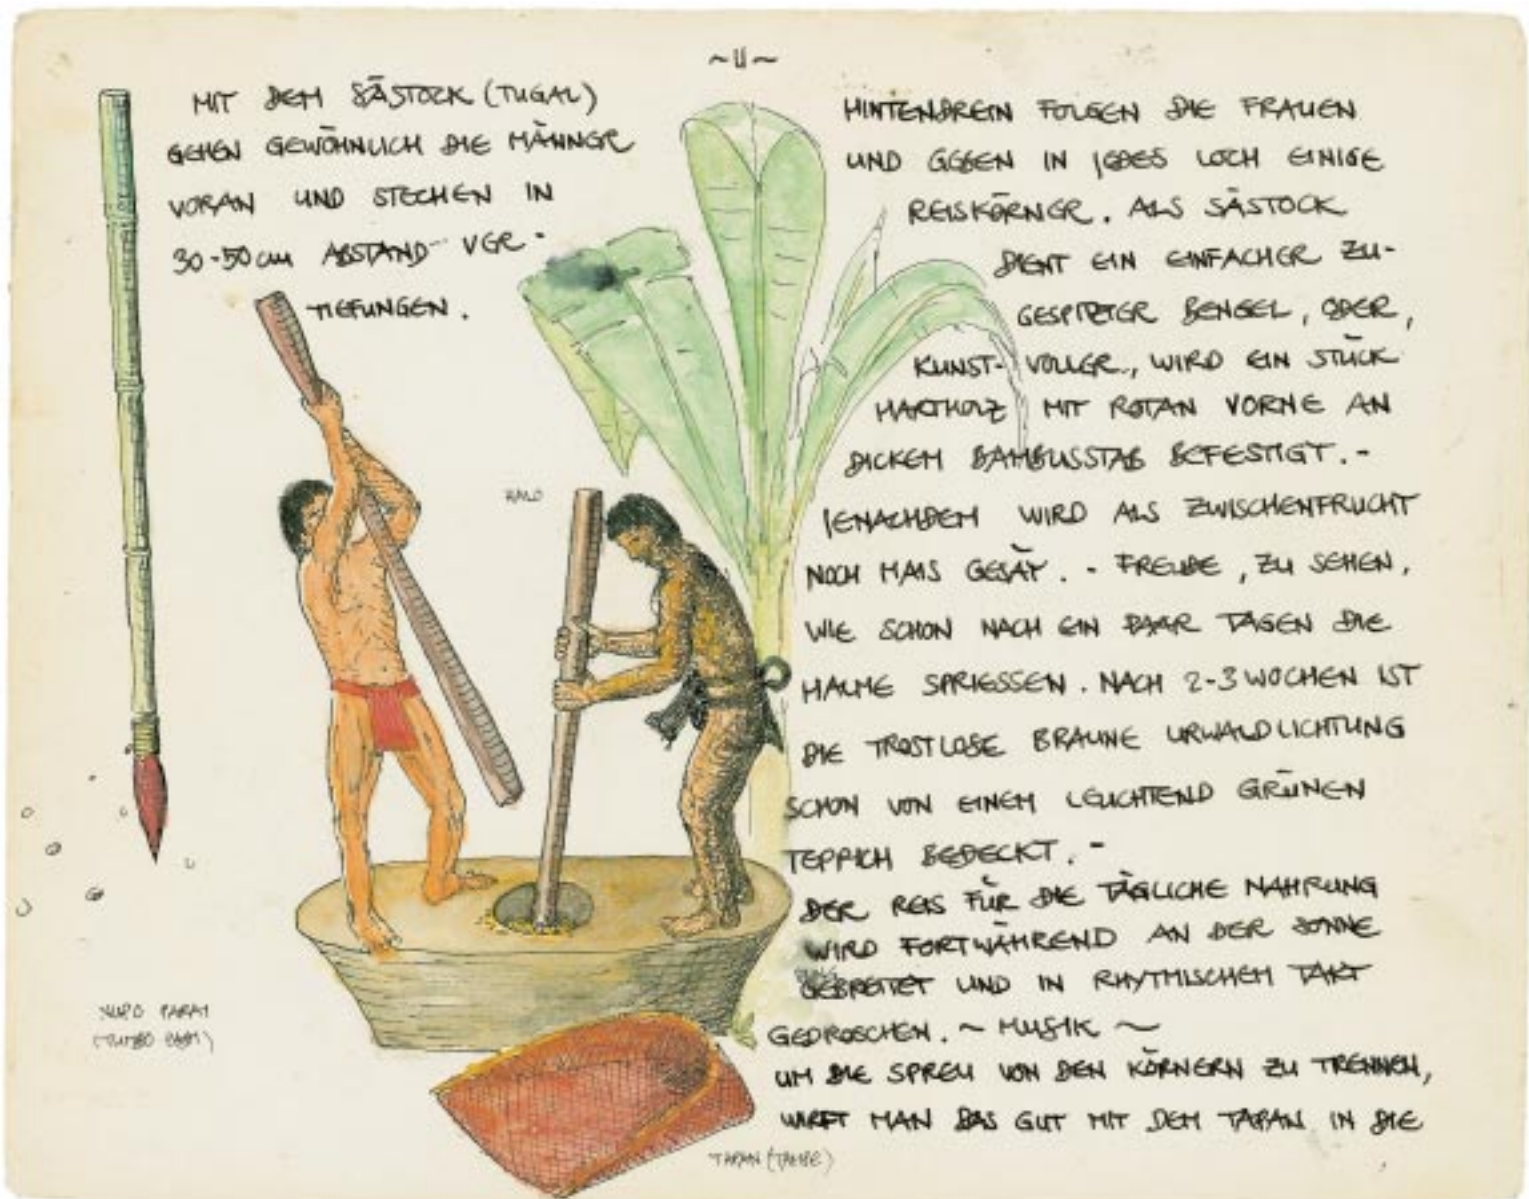 ~11~
MIT DEM SÄSTOCK (TUGAL)
GEHEN GEWÖHNLICH DIE MÄNNER
VORAN UND STECHEN IN
30-50 cm ABSTAND VER-
TIEFUNGEN.
HINTENDREIN FOLGEN DIE FRAUEN
UND GEBEN IN JEDES LOCH EINIGE
REISKÖRNER. ALS SÄSTOCK
DIENT EIN EINFACHER ZU-
GESPITZTER BENGEL, ODER,
KUNST-VOLLER, WIRD EIN STÜCK
HARTHOLZ MIT ROTAN VORNE AN
DICKEM BAMBUSSTAB BEFESTIGT.-
JENACHDEM WIRD ALS ZWISCHENFRUCHT
NOCH MAIS GESÄT. - FREUDE, ZU SEHEN,
WIE SCHON NACH EIN PAAR TAGEN DIE
HALME SPRIESSEN. NACH 2-3 WOCHEN IST
DIE TROSTLOSE BRAUNE URWALDLICHTUNG
SCHON VON EINEM LEUCHTEND GRÜNEN
TEPPICH BEDECKT.-
DER REIS FÜR DIE TÄGLICHE NAHRUNG
WIRD FORTWÄHREND AN DER SONNE
GEBREITET UND IN RHYTMISCHEM TAKT
GEDROSCHEN. ~ MUSIK ~
UM DIE SPREU VON DEN KÖRNERN ZU TRENNEN,
WIRFT MAN DAS GUT MIT DEM TAPAN IN DIE
TAPAN